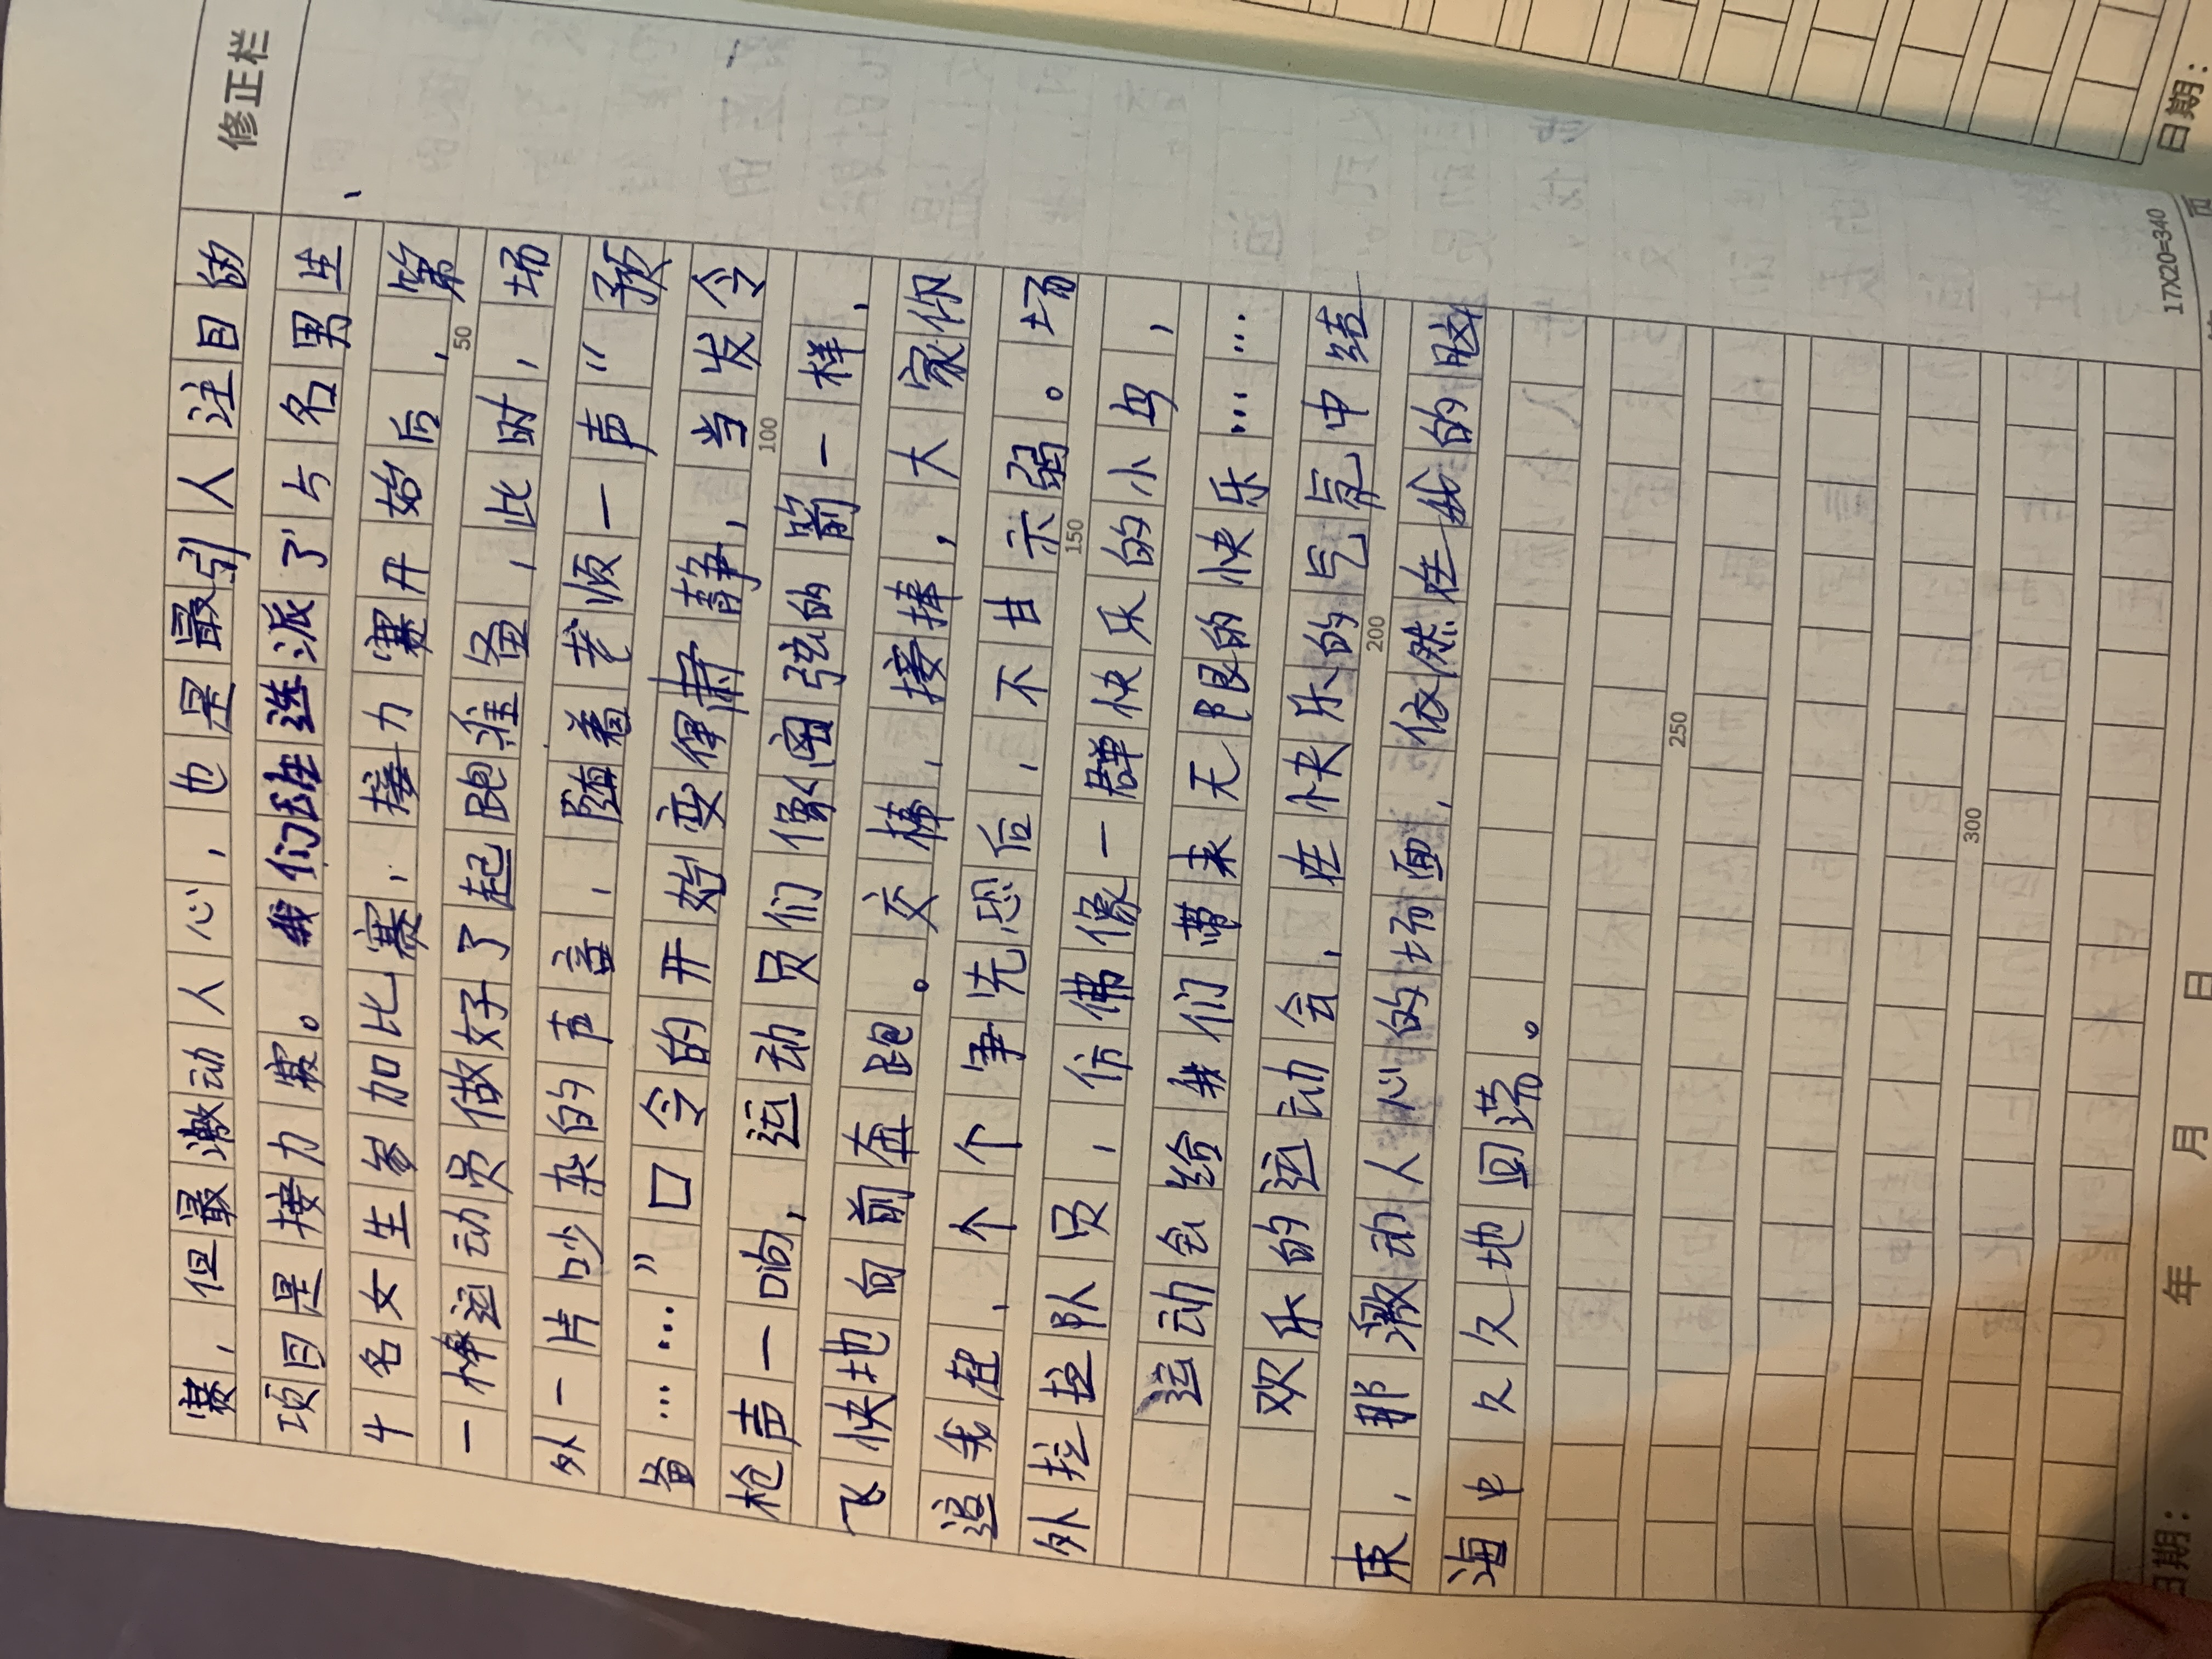 修正栏
赛，但最激动人心，也是最引人注目的
项目是接力赛。我们班选派了5名男生
4名女生参加比赛，接力赛开始后，第
50
一棒运动员做好了起跑准备，此时，场
外一片吵杂的声音，随着老师一声“预
备……”口令的开始变得肃静，当发令
100
枪声一响，运动员们像离弦的箭一样，
飞快地向前奔跑。交棒，接棒，大家你
追我赶，个个争先恐后，不甘示弱。场
150
外拉拉队员，仿佛像一群快乐的小鸟，
运动会给我们带来无限的快乐……
欢乐的运动会，在快乐的气氛中结
200
束，那激动人心的场面，依然在我的脑
海中久久地回荡。
250
300
17X20=340
日期：
年 月 日
页
日期：